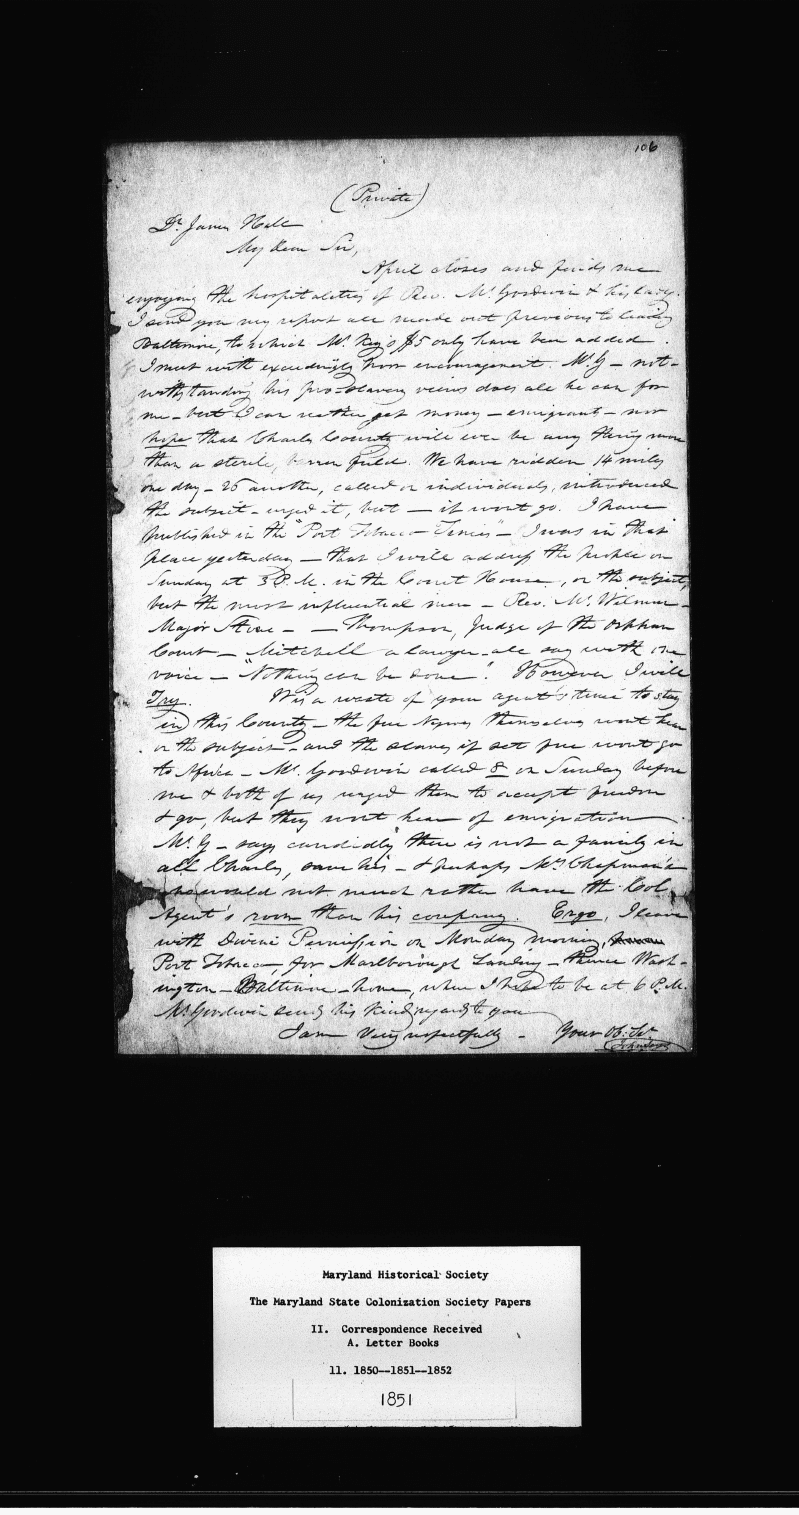 106
(Private)
Dr. James Hall
My dear Sir,
April closes and finds me
enjoying the hospitalities of Rev. Mr Goodwin & his lady.
I send you my report all made out previous to leaving
Baltimore, to which Mr Key's $5 only have been added.
I meet with exceedingly poor encouragement. Mr. G — not-
withstanding his pro-slavery views does all he can for
me — but I can neither get money — emigrant — nor
hope that Charles County will ever be any thing more
than a sterile, barren field. We have ridden 14 miles
one day — 25 another, called on individuals, introduced
the subject — urged it, but — it wont go. I have
published in the "Port Tobacco Times" — I was in that
place yesterday — that I will address the people on
Sunday at 3 P.M. in the Court House, on the subject,
but the most influential men — Rev. Mr. Wilmer —
Major Stone — — Thompson, Judge of the Orphan
Court — Mitchell a lawyer — all say with one
voice — "Nothing can be done". However I will
Try. It is a waste of your agent's time to stay
in this County — the free Negroes themselves wont hear
on the subject — and the slaves if set free wont go
to Africa — Mr. Goodwin called 8 on Sunday before
me & both of us urged them to accept freedom
& go, but they wont hear of emigration.
Mr. G — says candidly "there is not a family in
all Charles, save his — & perhaps Mrs Chapman's
who would not much rather have the Col.
Agent's room than his company. Ergo, I leave
with Divine Permission on Monday morning,
Port Tobacco, for Marlborough Landing — thence Wash-
ington — Baltimore — home, when I hope to be at 6 P.M.
Mr Goodwin sends his kind regards to you
I am Very respectfully — Your Ob: Sv.
Maryland Historical Society
The Maryland State Colonization Society Papers
II. Correspondence Received
A. Letter Books
11. 1850--1851--1852
1851